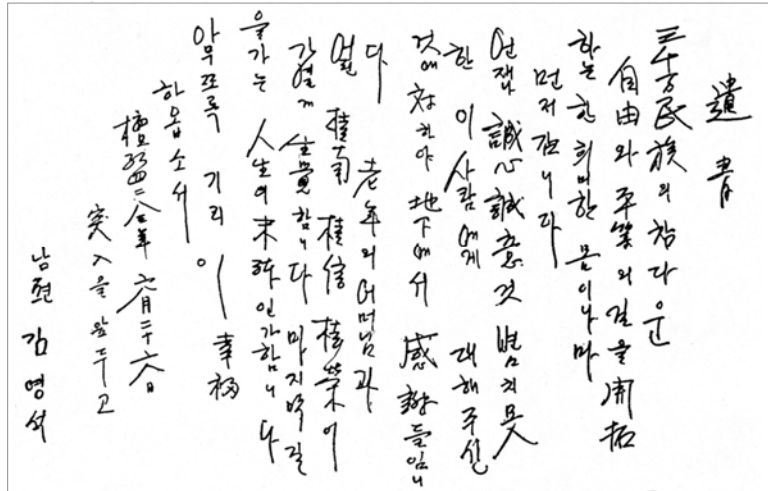 遺書
三千万民族의 참다운
自由와 平等의 길을 開拓
하는 한 희미한 몸이나마
먼저 갑니다
誠心誠意것
한 이 사람에게 대해주신
것에 対하야 地下에서 感謝들임니
다 老年의 어머님과
桂菊 桂信 桂榮이
生覺함니다 마지막길
을가는 人生의 末路인가함니다
아무쪼록 기리 이 幸福
하옵소서
檀紀四二八三年 六月二十六日
突入을 앞두고
김영석